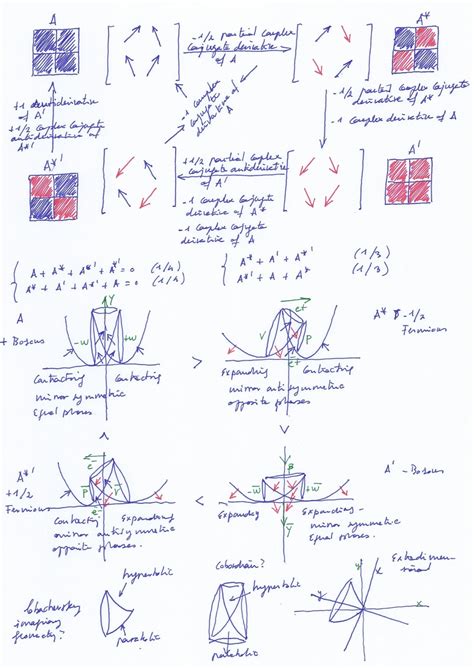 A
A*
-1/2 partial complex
conjugate derivative
of A
+1 derivative
of A'
+1/2 complex conjugate
antiderivative of
A*'
-1 complex
conjugate
derivative of
A
-1/2 partial complex conjugate
derivative of A*
-1 complex derivative of A
A*'
A'
+1/2 partial complex
conjugate antiderivative
of A'
-1 complex conjugate
derivative of A*
-1 complex conjugate
derivative of A
A + A* + A*' + A' = 0 (1/4)
A* + A' + A*' + A = 0 (1/4)
A* + A' + A*' (1/3)
A*' + A + A* (1/3)
A
+ Bosons
Y
-w
+w
Contracting Contracting
mirror symmetric
equal phases
>
e+
V
P
e+
Expanding Contracting
mirror antisymmetric
opposite phases
A*
-1/2
Fermions
A*'
+1/2
Fermions
e-
P
V
e-
Contracting Expanding
mirror antisymmetric
opposite phases.
<
B
-w
+w
Y
Expanding Expanding
mirror symmetric
equal phases.
A' - Bosons
Lobachevsky
imaginary
geometry?
hyperbolic
parabolic
Cobordism?
hyperbolic
parabolic
Extradimensional
y
x